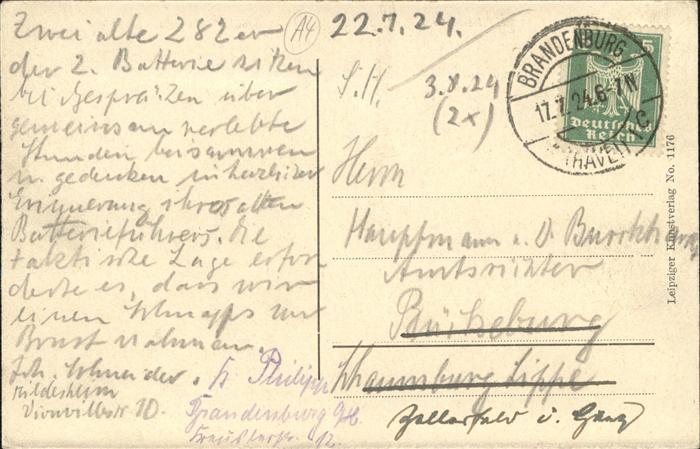 Zwei alte 282er
der 2. Batterie sitzen
bei Gesprächen über
gemeinsam verlebte
Stunden beisammen
u. gedenken in herzlicher
Erinnerung ihres alten
Batterieführers. Die
taktische Lage erfor
derte es, dass wir
einen Schnapps zur
Brust nahmen.
Joh. Schneider.
Hildesheim
Vionvillestr. 10.
Fr. Philipp
Brandenburg
12.
A4
22.7.24.
S.H.
3.8.24
(2x)
BRANDENBURG
17.7.24.6-7N
(HAVEL) C
5
Deutsches
Reich
Herrn
Hauptmann a. D.
Amtsrichter
Bückeburg
Schaumburg Lippe
Zellerfeld i. Harz
Leipziger Kunstverlag No. 1176